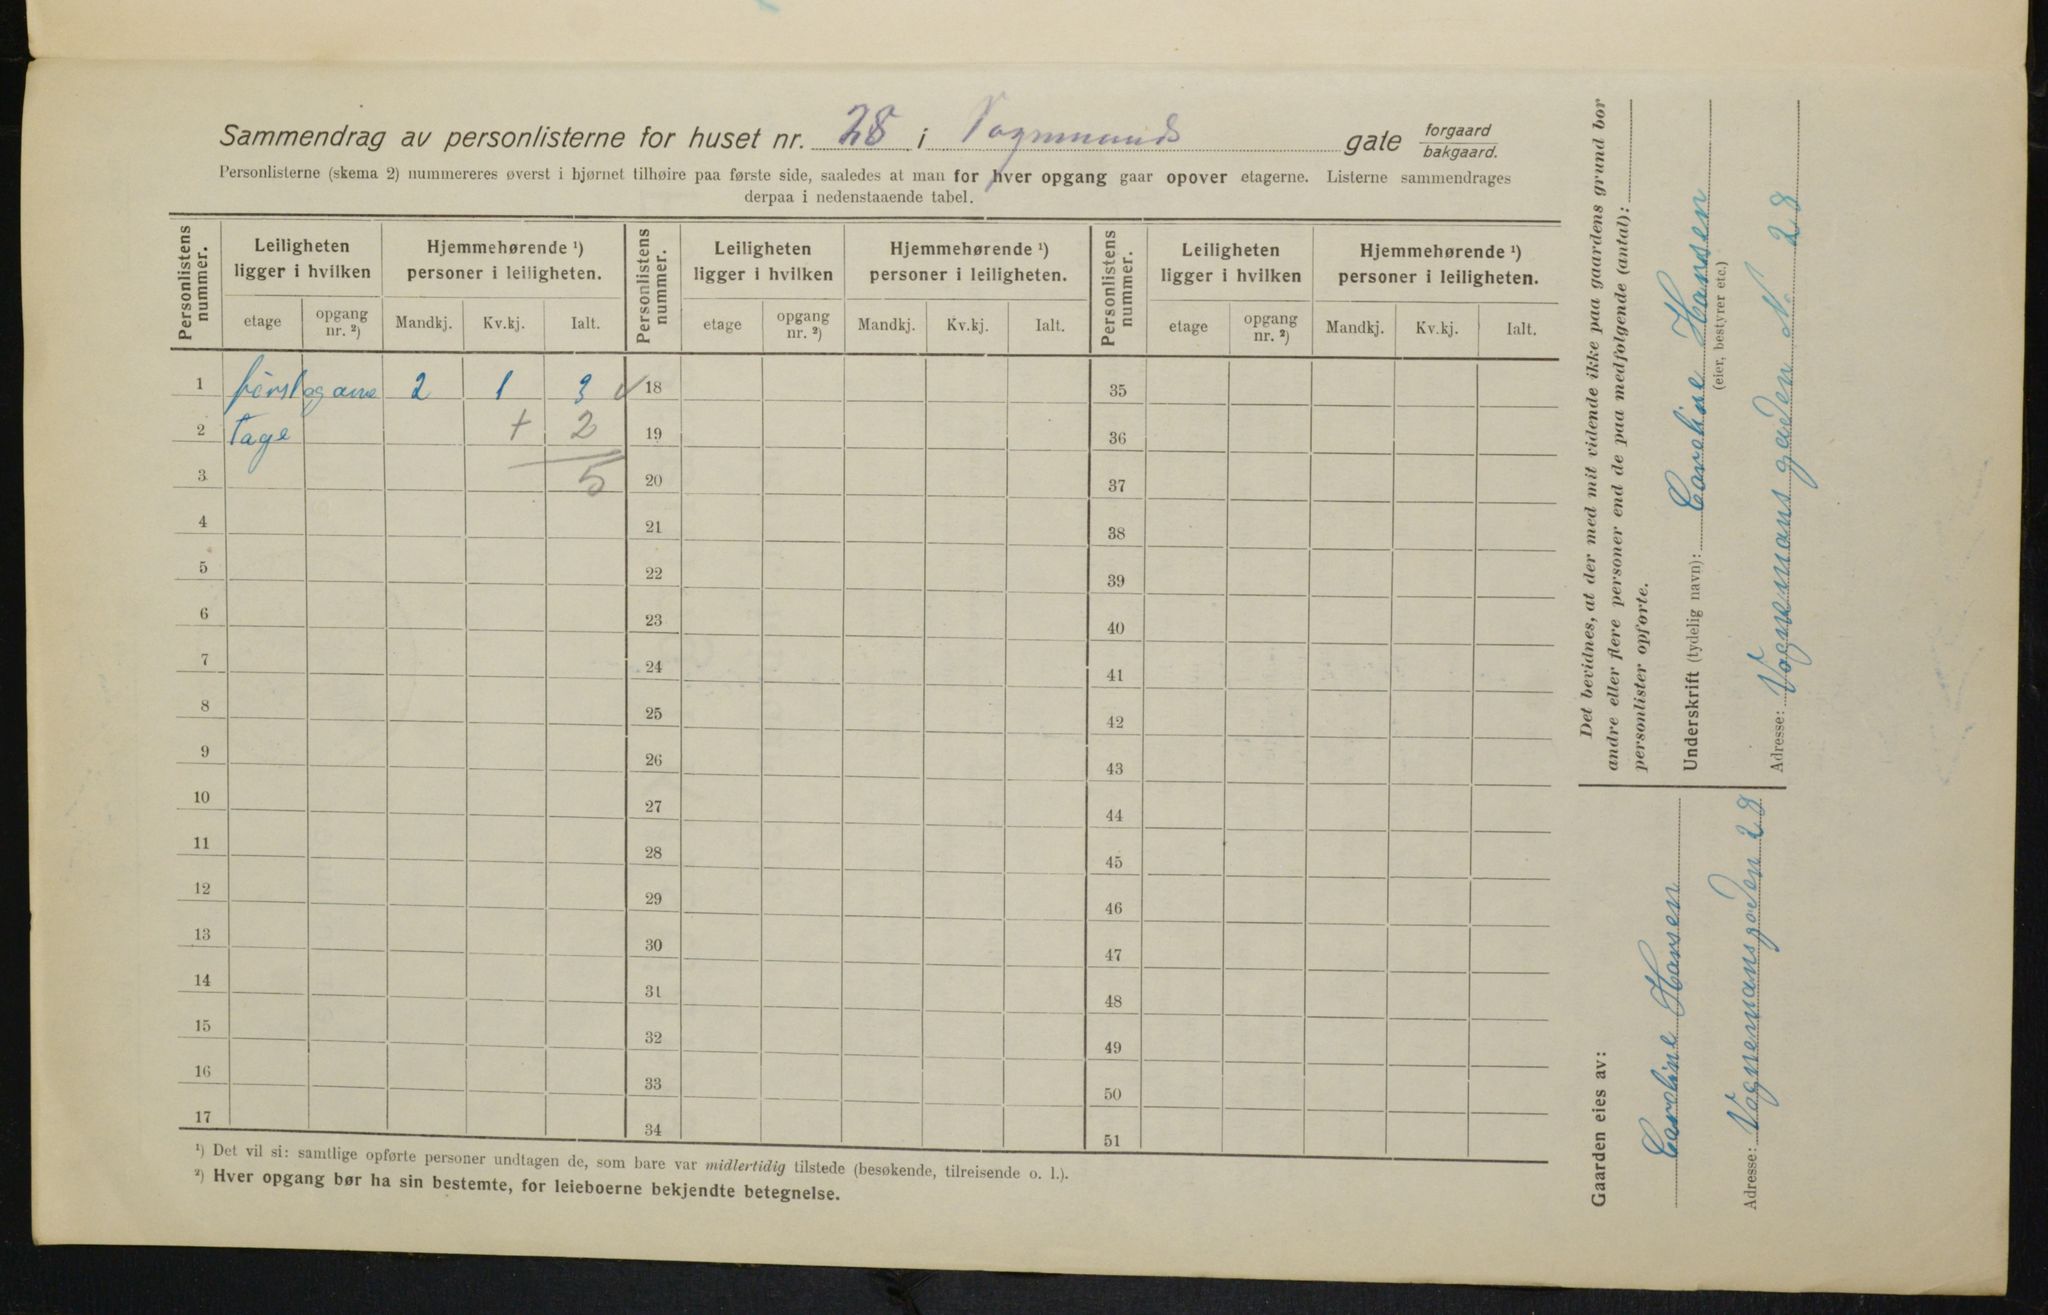 Sammendrag av personlisterne for huset nr. 28 i Vognmands gate forgaard bakgaard.
Personlisterne (skema 2) nummereres øverst i hjørnet tilhøire paa første side, saaledes at man for hver opgang gaar opover etagerne. Listerne sammendrages
derpaa i nedenstaaende tabel.
Personlistens nummer. Leiligheten ligger i hvilken Hjemmehørende ¹) personer i leiligheten. Personlistens nummer. Leiligheten ligger i hvilken Hjemmehørende ¹) personer i leiligheten. Personlistens nummer. Leiligheten ligger i hvilken Hjemmehørende ¹) personer i leiligheten.
etage opgang nr. ²) Mandkj. Kv.kj. Ialt. etage opgang nr. ²) Mandkj. Kv.kj. Ialt. etage opgang nr. ²) Mandkj. Kv.kj. Ialt.
1 først 2 1 3 ✓ 18 35
2 tage + 2 19 36
3 5 20 37
4 21 38
5 22 39
6 23 40
7 24 41
8 25 42
9 26 43
10 27 44
11 28 45
12 29 46
13 30 47
14 31 48
15 32 49
16 33 50
17 34 51
¹) Det vil si: samtlige opførte personer undtagen de, som bare var midlertidig tilstede (besøkende, tilreisende o. l.).
²) Hver opgang bør ha sin bestemte, for leieboerne bekjendte betegnelse.
Det bevidnes, at der med mit vidende ikke paa gaardens grund bor
andre eller flere personer end de paa medfølgende (antal):
personlister opførte.
Underskrift (tydelig navn): Caroline Hansen
(eier, bestyrer etc.)
Adresse: Vognemansgaden N. 28
Gaarden eies av:
Caroline Hansen
Adresse: Vognemansgaden 28